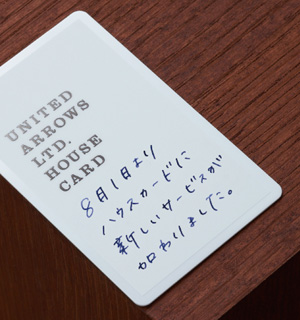 UNITED
ARROWS
LTD.
HOUSE
CARD
8月1日より
ハウスカードに
新しいサービスが
加わりました。